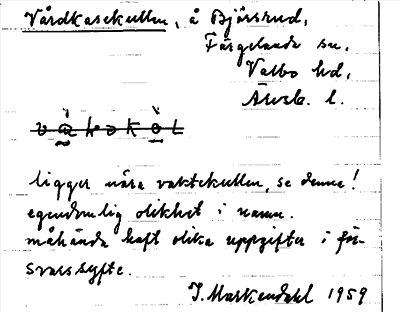 Vårdkasekullen, å Björsrud,
Färgelanda sn,
Valbo hd,
Älvsb. l.
ligger nära vaktekullen, se denna!
egendomlig olikhet i namn.
måhända haft olika uppgifter i för-
svarssyfte.
J. Markendahl 1959